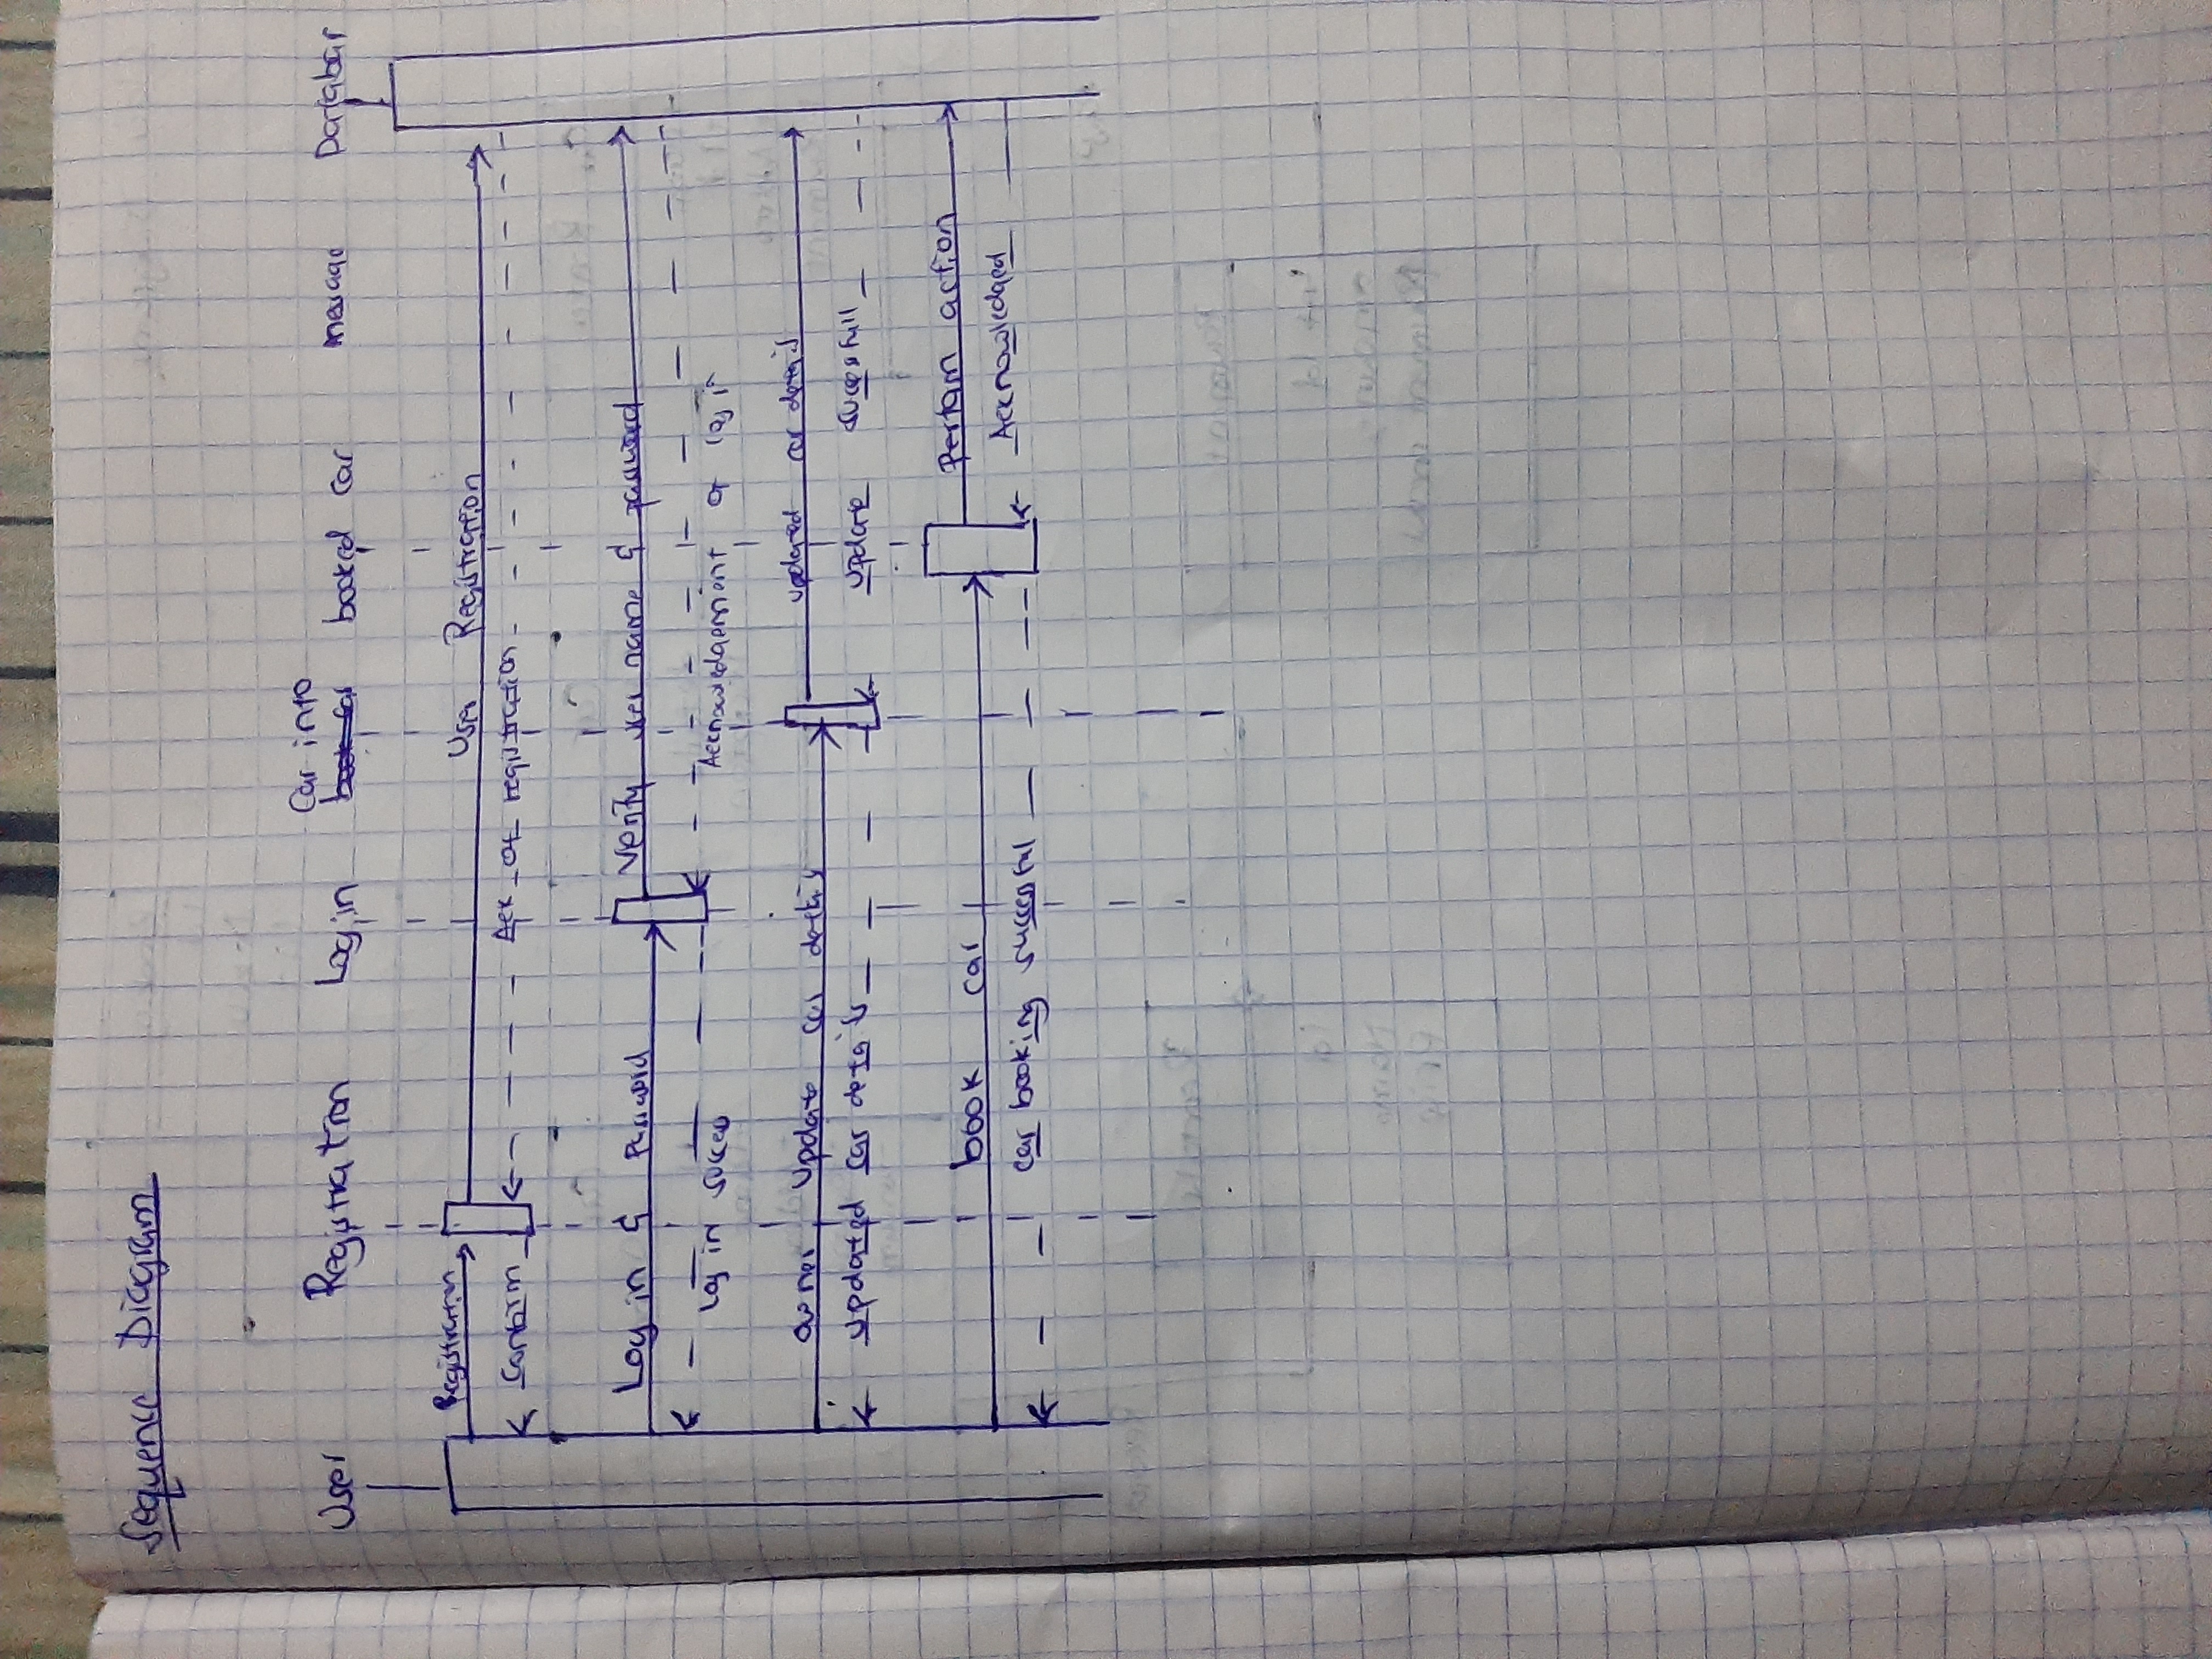 Sequence Diagram
Car info
User Registration Log in booked car message Database
Registration
User Registration
Confirm Ack of registration
Log in & Password Verify user name & password
Log in success Acknowledgement of log in
owner update car details updated car details
updated car details update sucessfull
book car Perform action
car booking successful Acknowledged